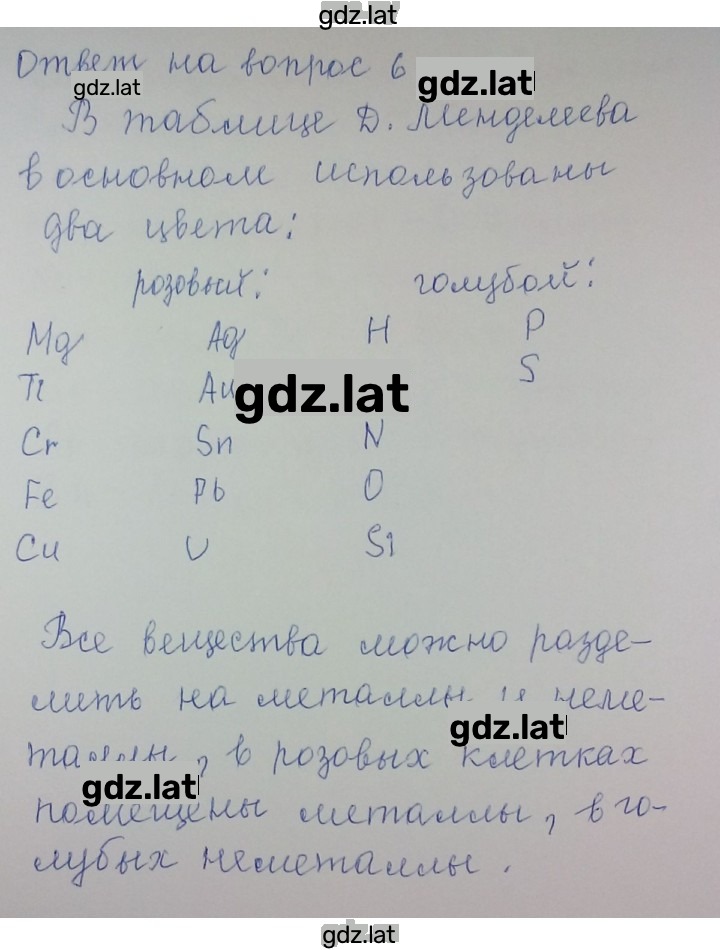 gdz.lat
Ответ на вопрос 6
gdz.lat
gdz.lat
В таблице Д. Менделеева
в основном использованы
два цвета:
розовый: голубой:
Mg Ag H P
Ti Au S
gdz.lat
Cr Sn N
Fe Pb O
Cu U Si
Все вещества можно разде-
лить на металлы и неме-
gdz.lat
таллы, в розовых клетках
gdz.lat
помещены металлы, в го-
лубых неметаллы.
gdz.lat